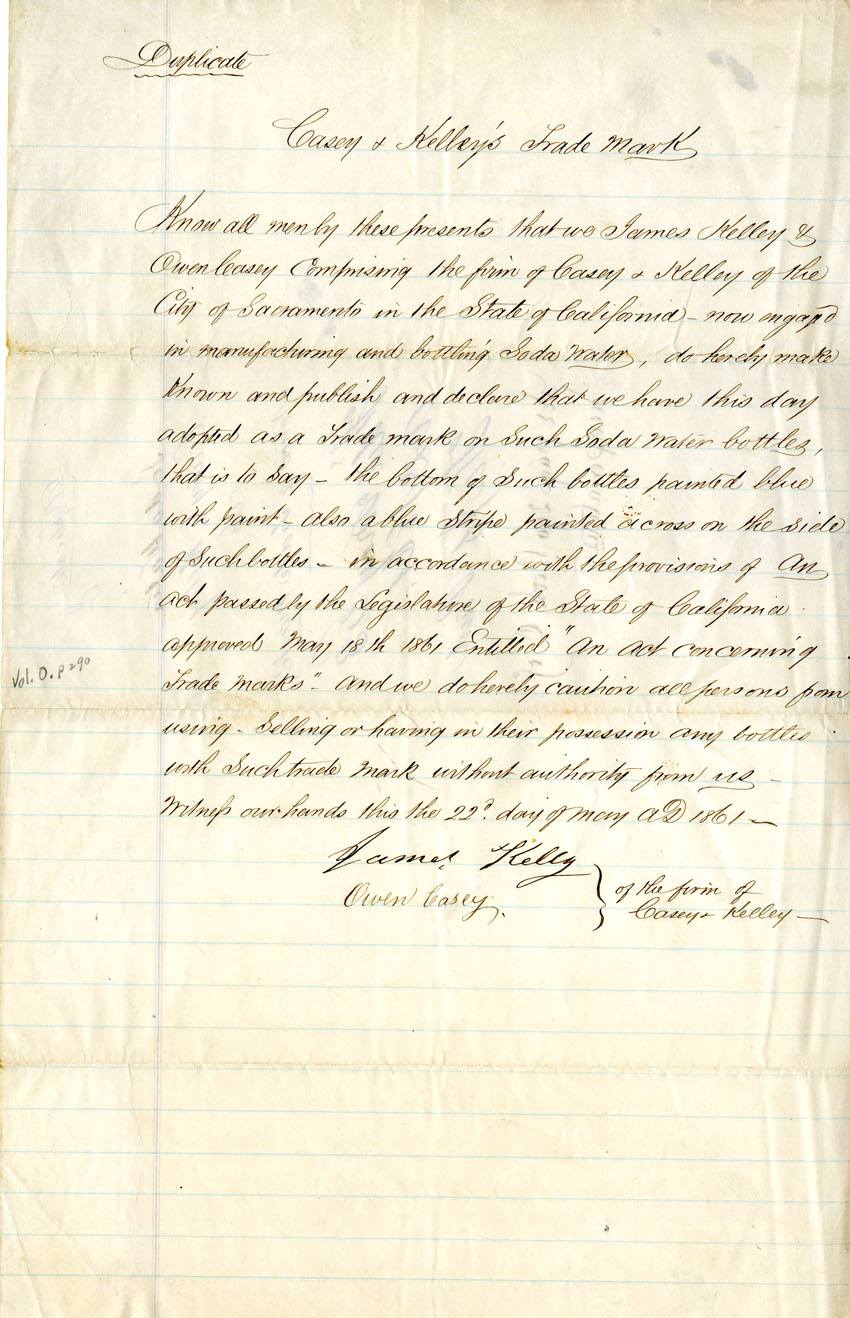 Duplicate
Casey & Kelley's Trade Mark
Know all men by these presents that we James Kelley &
Owen Casey Comprising the firm of Casey & Kelley of the
City of Sacramento in the State of California - now engag'd
in manufacturing and bottling Soda Water, do hereby make
Known and publish and declare that we have this day
adopted as a Trade mark on Such Soda Water bottles,
that is to Say - the bottom of Such bottles painted blue
with paint - also a blue Stripe painted across on the side
of Such bottles - in accordance with the provisions of An
act passed by the Legislature of the State of California -
approved May 18th 1861 Entitled "An Act concerning
Trade Marks" - And we do hereby caution all persons from
Vol. O. p 290
using - Selling or having in their possession any bottles
with Such trade Mark without authority from us -
Witness our hands this the 22d. day of May AD 1861 -
James Kelly
Owen Casey.
of the firm of
Casey & Kelley -